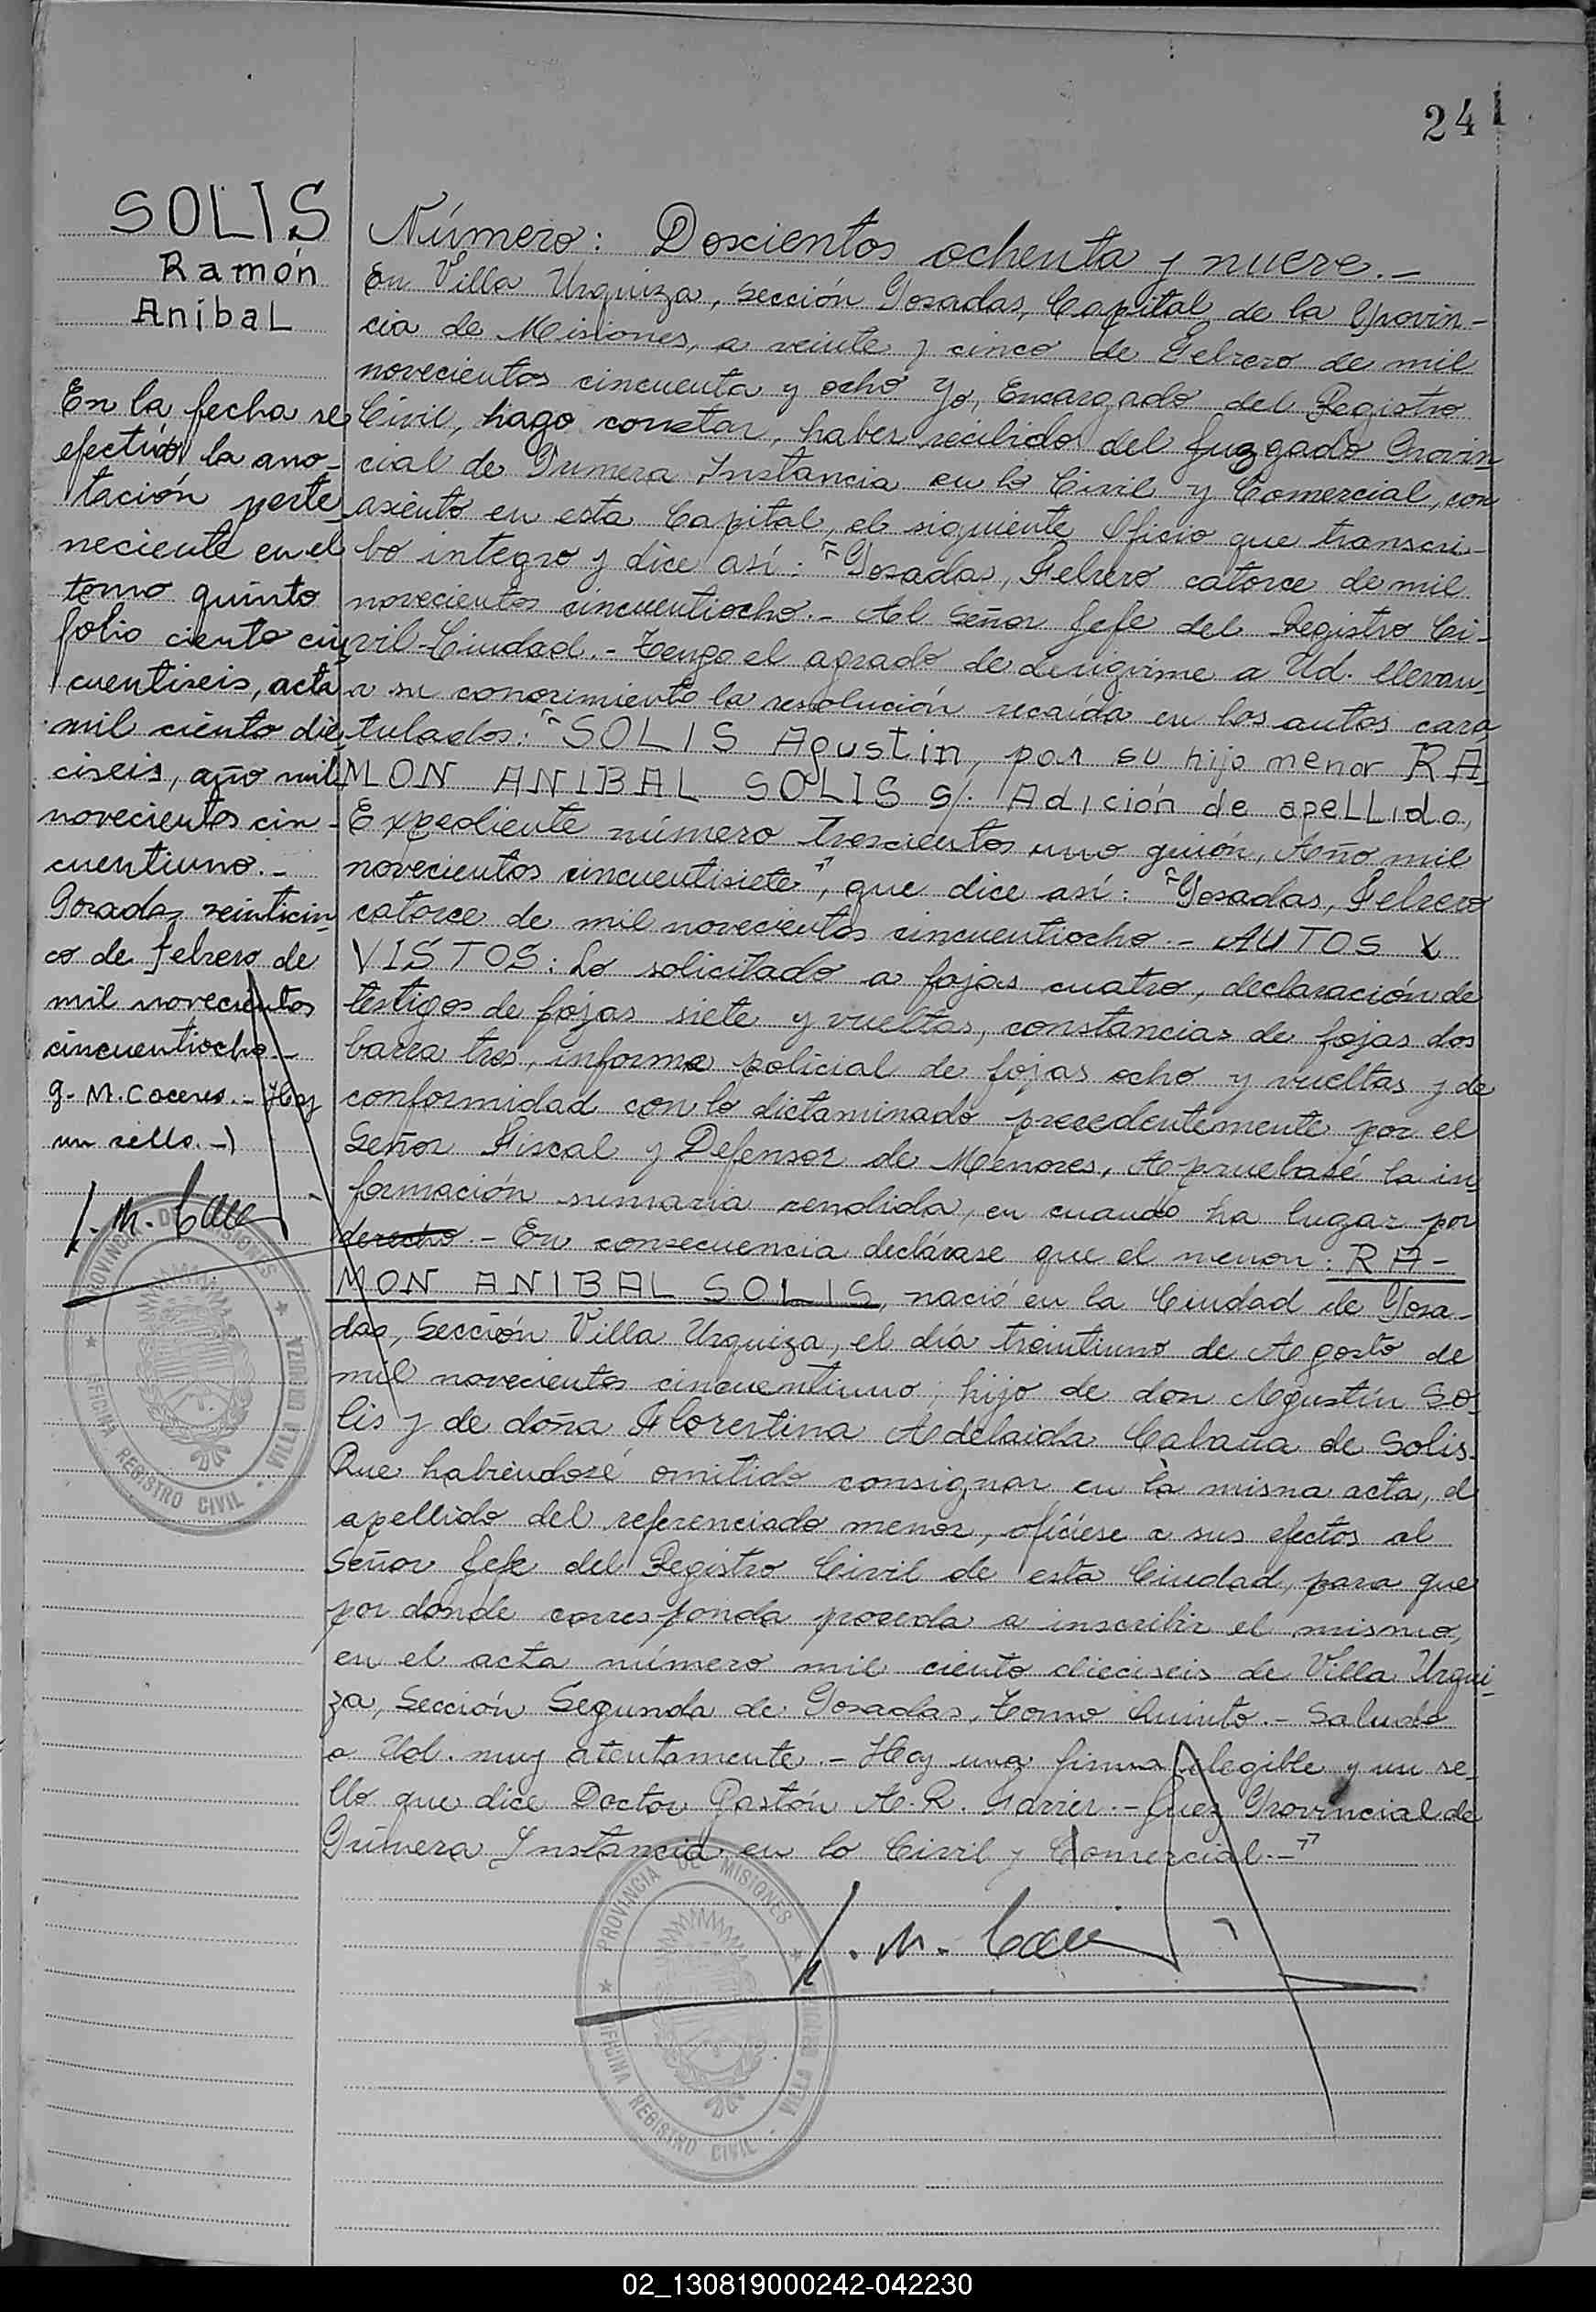 241
SOLIS
Ramón
Anibal
En la fecha se
efectúo la ano-
tación perte-
neciente en el
tomo quinto
folio ciento cin
cuentiseis, acta
mil ciento die-
ciseis, año mil
novecientos cin-
cuentiuno.-
Posadas veinticin-
co de febrero de
mil novecientos
cincuentiocho.-
J. M. Caceres.- Hay
un sello.-)
PROVINCIA DE MISIONES
OFICINA REGISTRO CIVIL
VILLA URQUIZA
Número: Doscientos ochenta y nueve.-
En Villa Urquiza, Sección Posadas, Capital de la Provin-
cia de Misiones, a veinte y cinco de Febrero de mil
novecientos cincuenta y ocho Yo, Encargado del Registro
Civil, hago constar, haber recibido del Juzgado Provin
cial de Primera Instancia en lo Civil y Comercial, con
asiento en esta Capital, el siguiente Oficio que transcri-
bo integro y dice así: "Posadas, Febrero catorce de mil
novecientos cincuentiocho.- Al Señor Jefe del Registro Ci-
vil-Ciudad.- Tengo el agrado de dirigirme a Ud. llevan-
a su conocimiento la resolución recaída en los autos cara
tulados: "SOLIS Agustin, por su hijo menor RA
MON ANIBAL SOLIS s/. Adición de apellido,
Expediente número trescientos uno guión, Año mil
novecientos cincuentisiete", que dice así: "Posadas, Febrero
catorce de mil novecientos cincuentiocho.- AUTOS Y
VISTOS: Lo solicitado a fojas cuatro, declaración de
testigos de fojas siete y vueltas, constancias de fojas dos
barra tres, informe policial de fojas ocho y vueltas y de
conformidad con lo dictaminado precedentemente por el
Señor Fiscal y Defensor de Menores, Apruebasé la in-
formación sumaria rendida, en cuando ha lugar por
derecho.- En consecuencia declárase que el menor: RA-
MON ANIBAL SOLIS, nació en la Ciudad de Posa-
das, Sección Villa Urquiza, el día treintiuno de Agosto de
mil novecientos cincuentiuno, hijo de don Agustín So-
lis y de doña Florentina Adelaida Cabaña de Solis.
Que habiendosé omitido consignar en la misma acta, el
apellido del referenciado menor, ofíciese a sus efectos al
Señor Jefe del Registro Civil de esta Ciudad, para que
por donde corresponda proceda a inscribir el mismo,
en el acta número mil ciento dieciseis de Villa Urqui-
za, Sección Segunda de Posadas, Tomo Quinto.- Saludo
a Ud. muy atentamente.- Hay una firma ilegible y un se-
llo que dice Doctor Gastón A. R. Garrier.- Juez Provincial de
Primera Instancia en lo Civil y Comercial.-"
PROVINCIA DE MISIONES
OFICINA REGISTRO CIVIL
VILLA URQUIZA
02_130819000242-042230